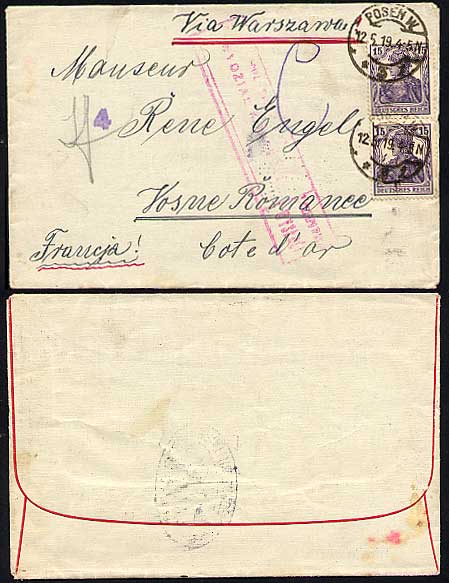 Via Warszawa
POSEN W.
12.5.19.4-5N
* 5 z *
15
DEUTSCHES REICH
Monseur
4
Réne Engel
15 15
12.5.19.4-5N
DEUTSCHES REICH
Vosne Romanee
Francja! Cote d'or